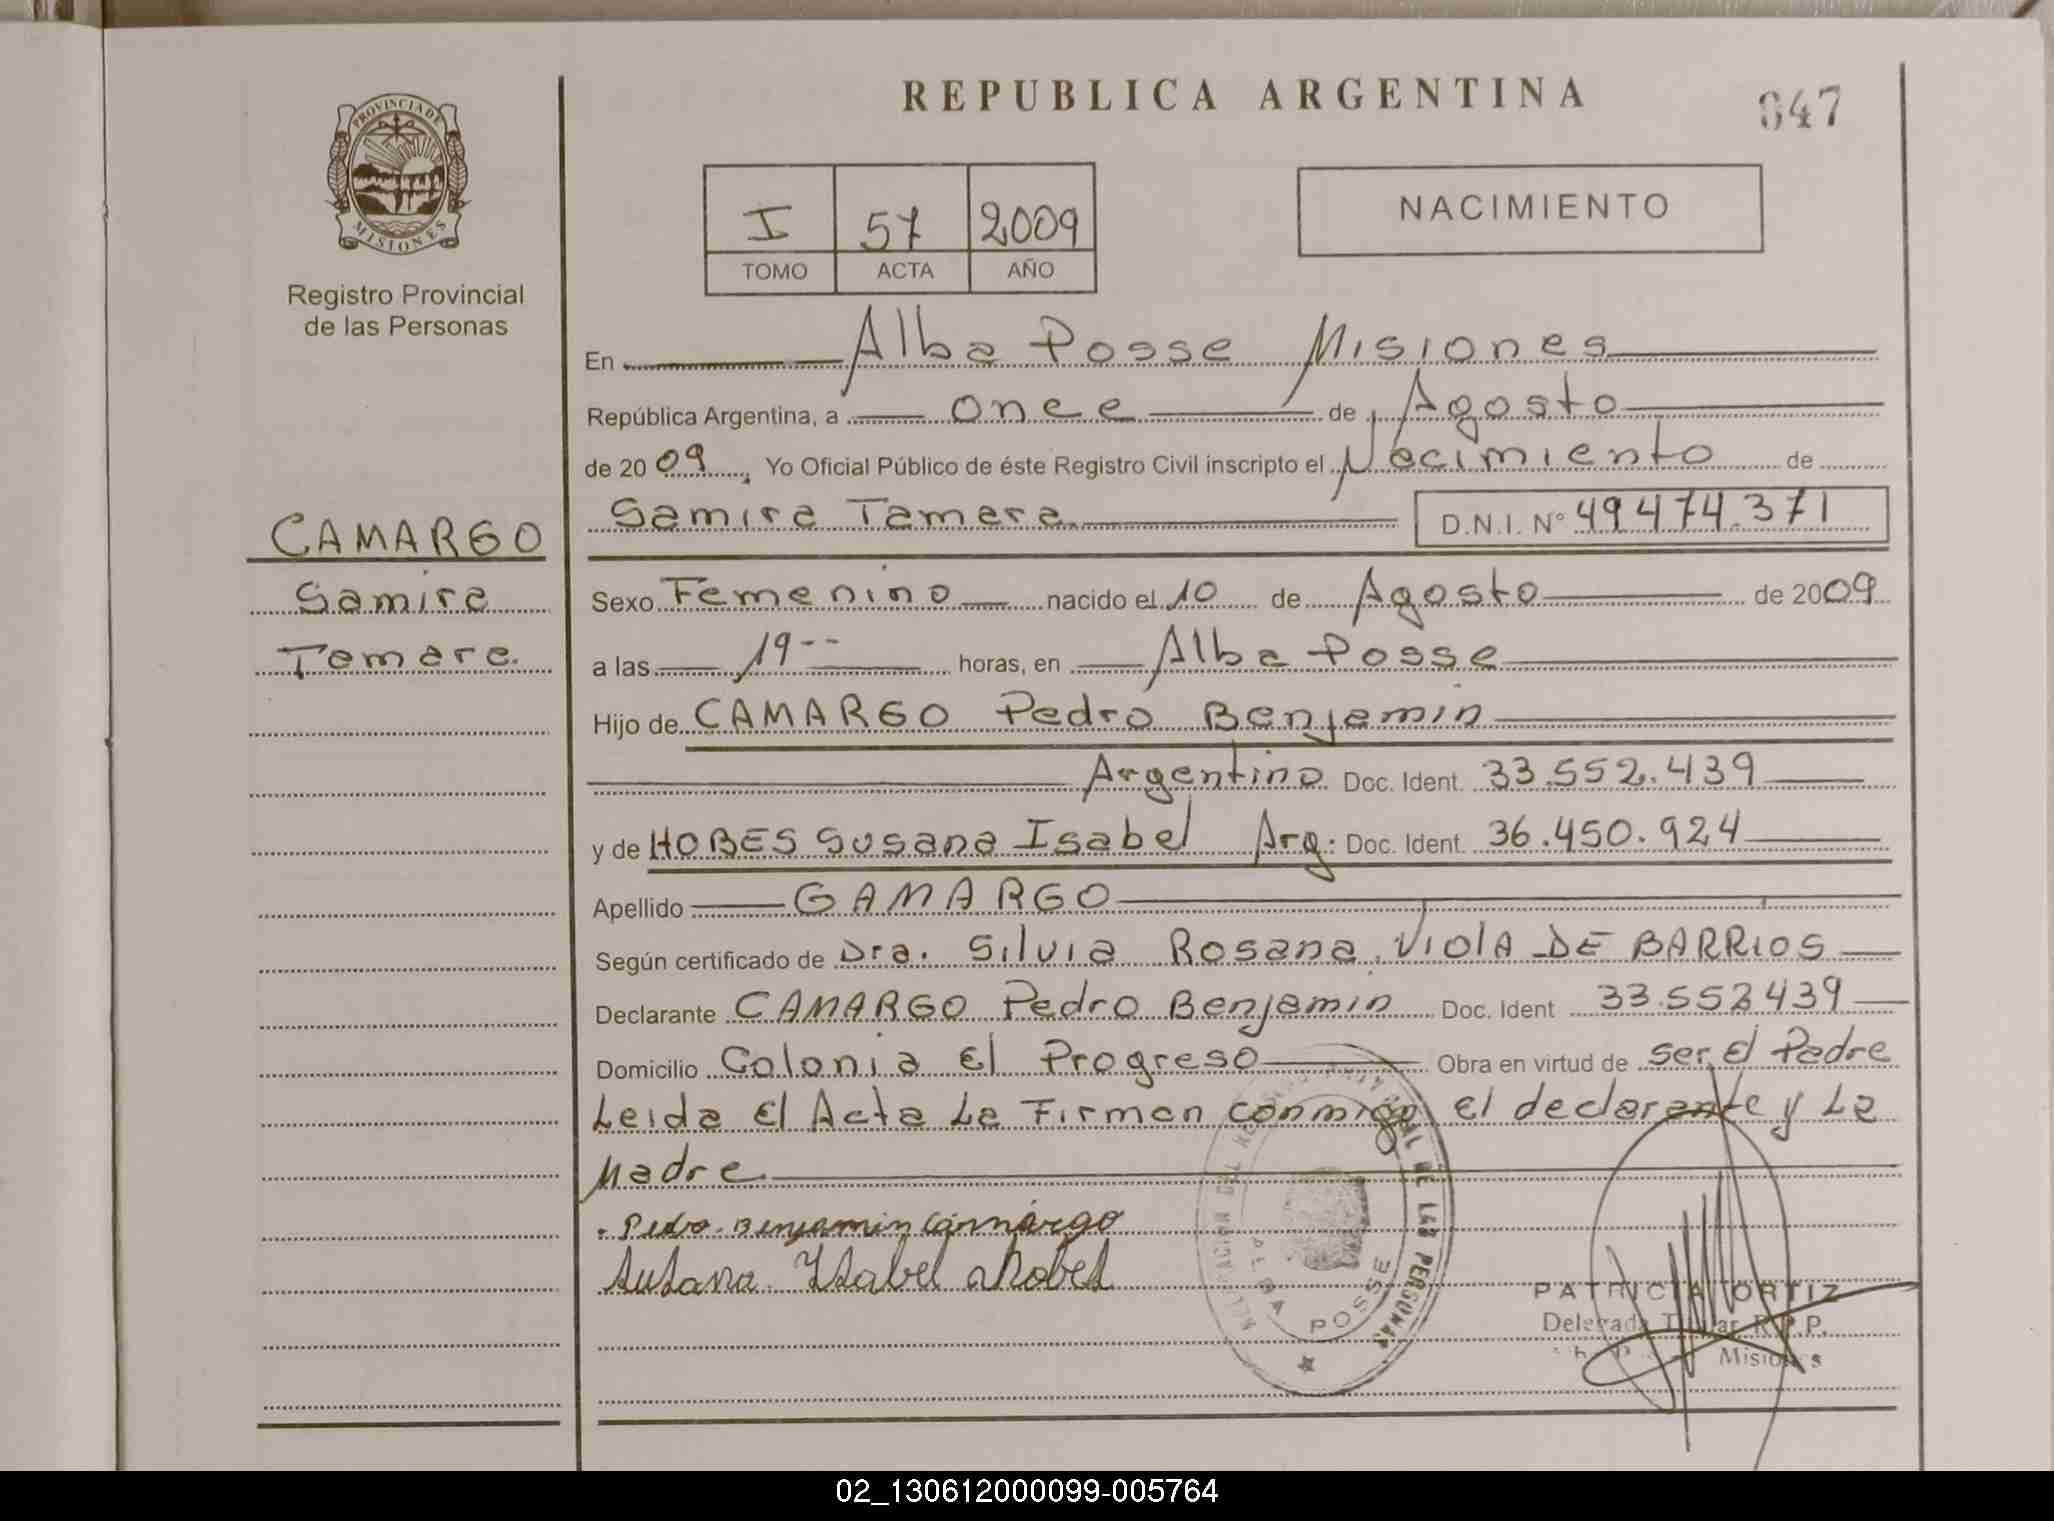 REPUBLICA ARGENTINA
047
PROVINCIA DE
MISIONES
Registro Provincial
de las Personas
I 57 2009
TOMO ACTA AÑO
NACIMIENTO
En Alba Posse Misiones
República Argentina, a once de Agosto
de 2009, Yo Oficial Público de éste Registro Civil inscripto el Nacimiento de
Samira Tamara D.N.I. Nº 49474.371
CAMARGO
Samira
Tamara
Sexo Femenino nacido el 10 de Agosto de 2009
a las 19-- horas, en Alba Posse
Hijo de CAMARGO Pedro Benjamin
Argentino Doc. Ident. 33.552.439
y de HOBES Susana Isabel Arg: Doc. Ident. 36.450.924
Apellido CAMARGO
Según certificado de Dra. Silvia Rosana VIOLA DE BARRIOS
Declarante CAMARGO Pedro Benjamin Doc. Ident 33.552439
Domicilio Colonia El Progreso Obra en virtud de ser El Padre
Leida El Acta La Firman conmigo el declarante y La
Madre
Pedro Benjamin Camargo
Susana Isabel Hobes
DE LAS PERSONAS
ALBA POSSE
PATRICIA ORTIZ
Delegada Titular R.P.P.
Misiones
02_130612000099-005764